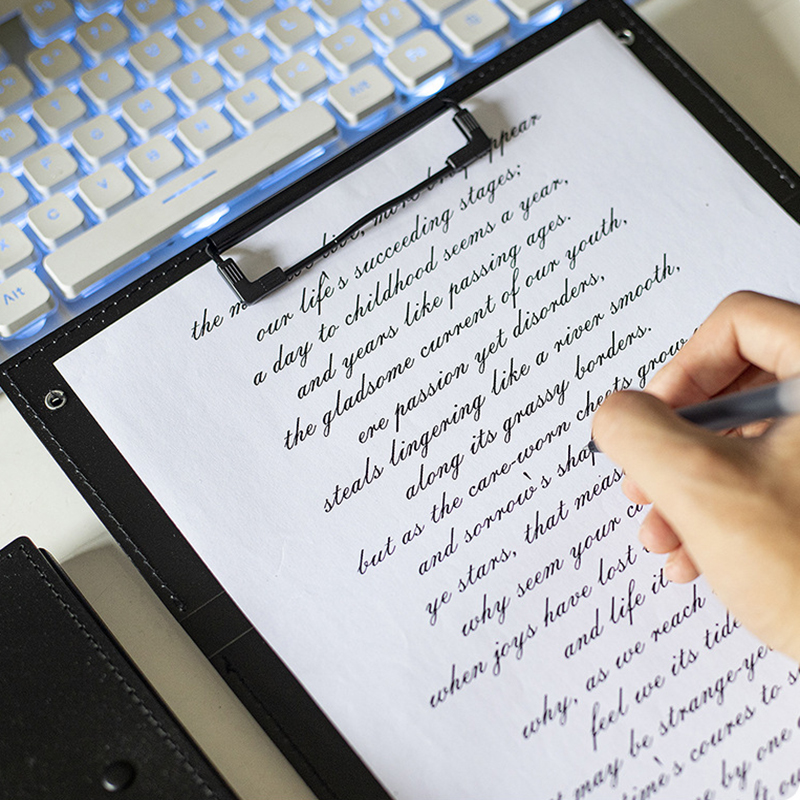 the
our life's succeeding stages;
a day to childhood seems a year,
and years like passing ages.
the gladsome current of our youth,
ere passion yet disorders,
steals lingering like a river smooth,
along its grassy borders.
but as the care-worn cheets grow
and sorrow's
ye stars, that
why seem your
when joys have lost
and life
why, as we reach
feel we its tide
may be
coures to
by one
Alt
Fn
Alt
X
C
V
B
N
M